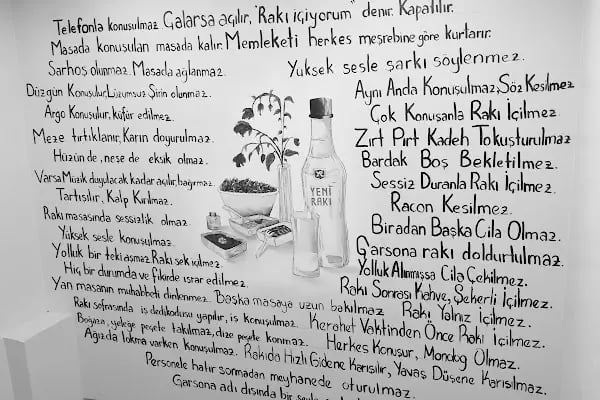 Telefonla konuşulmaz. Galarsa açılır, "Rakı içiyorum" denir. Kapatılır.
Masada konuşulan masada kalır. Memleketi herkes meşrebine göre kurtarır.
Sarhoş olunmaz. Masada ağlanmaz.
Yüksek sesle şarkı söylenmez.
Düzgün Konuşulur, Lüzumsuz Şirin olunmaz.
Argo Konuşulur, küfür edilmez.
Meze tırtıklanır, Karın doyurulmaz.
Hüzün de, neşe de eksik olmaz.
Varsa Müzik duyulacak kadar açılır, bağırmaz.
Tartışılır, Kalp Kırılmaz.
Rakı masasında sessizlik olmaz.
Yüksek sesle konuşulmaz.
Yolluk bir teki aşmaz. Rakı sek içilmez.
Hiç bir durumda ve fikirde ısrar edilmez.
Yan masanın muhabbeti dinlenmez. Başka masaya uzun bakılmaz.
Rakı sofrasında iş dedikodusu yapılır, iş konuşulmaz.
Boğaza, yeleğe peçete takılmaz, dize peçete konmaz.
Ağızda lokma varken konuşulmaz.
Aynı Anda Konuşulmaz, Söz Kesilmez
Çok Konuşanla Rakı İçilmez.
Zırt Pırt Kadeh Tokuşturulmaz
Bardak Boş Bekletilmez.
Sessiz Duranla Rakı İçilmez.
Racon Kesilmez.
Biradan Başka Cila Olmaz.
Garsona rakı doldurtulmaz.
Yolluk Alınmışsa Cila Çekilmez.
Rakı Sonrası Kahve, Şekerli İçilmez.
Rakı Yalnız İçilmez.
Kerahet Vaktinden Önce Rakı İçilmez.
Herkes Konuşur, Monolog Olmaz.
Rakıda Hızlı Gidene Karışılır, Yavaş Düşene Karışılmaz.
Personele hatır sormadan meyhanede oturulmaz.
Garsona adı dışında bir
YENİ
RAKI